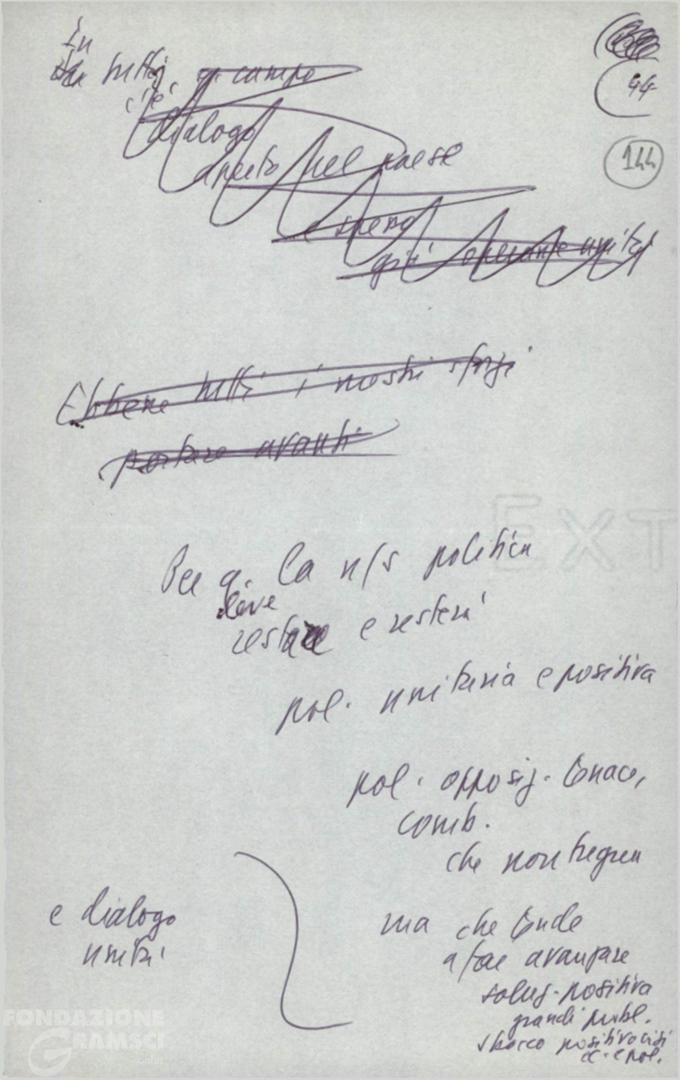 In
tutti i campi
c'è
44
dialogo
144
aperto nel paese
e siamo
già operante unità
Ebbene tutti i nostri sforzi
portare avanti
EXT
Per q. la n/s politica
deve
restare e resterà
pol. unitaria e positiva
pol. opposiz. tenace,
comb.
che non tregua
e dialogo
unità
ma che tende
a far avanzare
soluz. positiva
grandi probl.
sbocco positivo crisi
ec. e pol.
FONDAZIONE
GRAMSCI